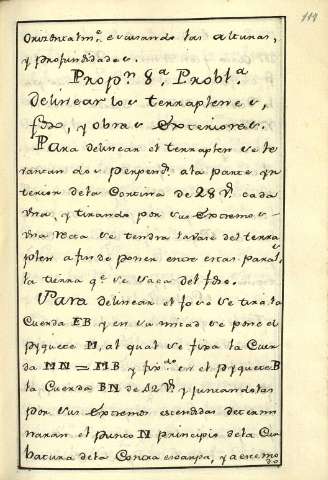 119
Orizontalmte. escusando las alturas,
y profundidades.
Propn. 8a. Probla.
Delinear los terraplenes,
fso, y obras exteriores.
Para delinear el terraplen se le
vantan dos perpends. a la parte yn
terior de la Cortina de 28 Vs. cada
vna, y tirando por sus extremos
vna recta se tendra la vase del terra
plen a fin de poner entre estas parals.
la tierra qe. se saca del fso.
Para delinear el foso se tira la
Cuerda EB y en su mitad se pone el
pyquete M, al qual se fixa la Cuer
da MN = MB y fixdo. en el pyquete B
la Cuerda BN de 12 Vs. y juntandolas
por sus extremos estendidas determi
naran el punto N principio de la Cur
batura de la Contra escarpa, y a este mo
do